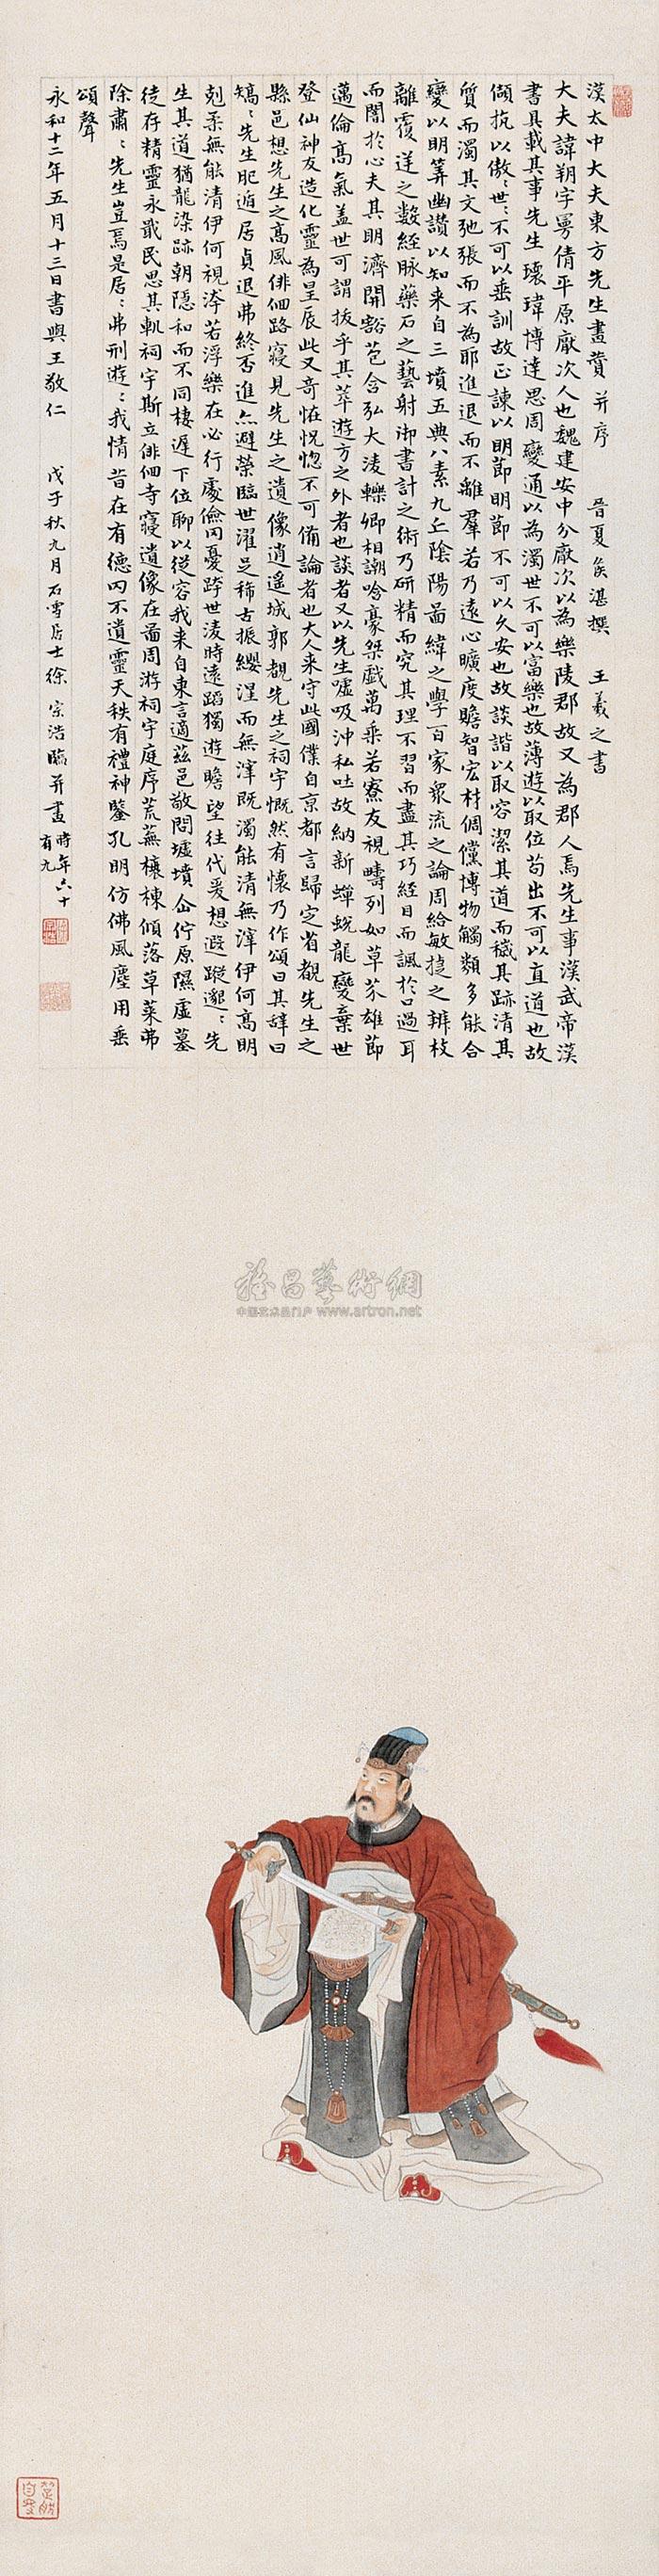 漢太中大夫東方先生畫贊 并序 晉夏侯湛撰 王羲之書
大夫諱朔字曼倩平原厭次人也魏建安中分厭次以為樂陵郡故又為郡人焉先生事漢武帝漢
書具載其事先生瓌瑋博達思周變通以為濁世不可以富樂也故薄遊以取位苟出不可以直道也故
頡抗以傲:世:不可以垂訓故正諫以明節明節不可以久安也故談諧以取容潔其道而穢其跡清其
質而濁其文弛張而不為耶進退而不離羣若乃遠心曠度贍智宏材倜儻博物觸類多能合
變以明筭幽讚以知来自三墳五典八素九丘陰陽圖緯之學百家衆流之論周給敏捷之辨枝
離覆逆之數経脉藥石之藝射御書計之術乃研精而究其理不習而盡其巧経目而諷於口過耳
而闇於心夫其明濟開豁苞含弘大淩轢卿相謿哈豪桀戲萬乗若寮友視疇列如草芥雄節
邁倫高氣盖世可謂拔乎其萃遊方之外者也談者又以先生嘘吸沖私吐故納新蟬蛻龍變棄世
登仙神友造化靈為星辰此又奇怪怳惚不可備論者也大人来守此國僕自京都言歸定省覩先生之
縣邑想先生之高風俳佪路寢見先生之遺像逍遥城郭覩先生之祠宇慨然有懷乃作頌曰其辝曰
矯:先生肥遁居貞退弗終否進亦避榮臨世濯足稀古振纓涅而無滓既濁能清無滓伊何高明
剋柔無能清伊何視洿若浮樂在必行處儉罔憂跨世淩時遠蹈獨遊瞻望往代爰想遐蹤邈:先
生其道猶龍染跡朝隐和而不同棲遲下位聊以從容我来自東言適茲邑敬問墟墳企佇原隰虛墓
徒存精靈永戢民思其軌祠宇斯立俳佪寺寢遺像在圖周游祠宇庭序荒蕪榱棟傾落草萊弗
除肅:先生豈焉是居:弗刑遊:我情昔在有德罔不遺靈天秩有禮神鑒孔明仿佛風塵用垂
頌聲
永和十二年五月十三日書與王敬仁 戊子秋九月石雪居士徐宗浩臨并畫時年六十有九
雅昌藝術網
中国艺术品门户 www.artron.net